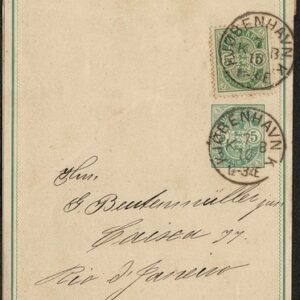 KJØBENHAVN K
KJØBENHAVN K
5
Hrn
G. Beutenmüller jun
Caixa 77.
Rio d'Janeiro